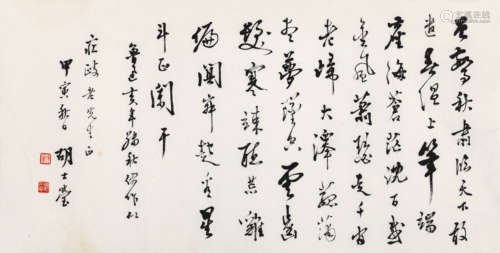 曾驚秋肅臨天下敢
遣春温上筆端
塵海蒼茫沈百感
金風蕭瑟走千官
老歸大澤菰蒲
盡夢墜空雲齒
髮寒竦聽荒雞
偏闃寂起看星
斗正闌干
魯迅亥年殘秋偶作
老先生正
甲寅秋日 胡士瑩